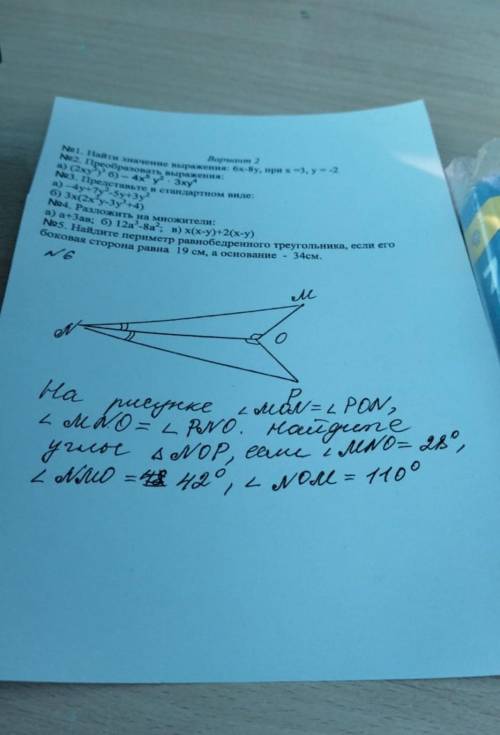 Вариант 2
№1. Найти значение выражения: 6х-8у, при х =3, у = -2
№2. Преобразовать выражения:
а) (2ху³)³ б) – 4х⁸ у⁵ · 3ху⁴
№3. Представьте в стандартном виде:
а) –4у+7у²-5у+3у²
б) 3х(2х³у-3у³+4)
№4. Разложить на множители:
а) а+3ав; б) 12а³-8а²; в) х(х-у)+2(х-у)
№5. Найдите периметр равнобедренного треугольника, если его
боковая сторона равна 19 см, а основание - 34см.
№6
M
N
O
P
На рисунке ∠MON=∠PON,
∠MNO = ∠PNO. Найдите
углы △NOP, если ∠MNO= 28°,
∠NMO = 42°, ∠NOM = 110°